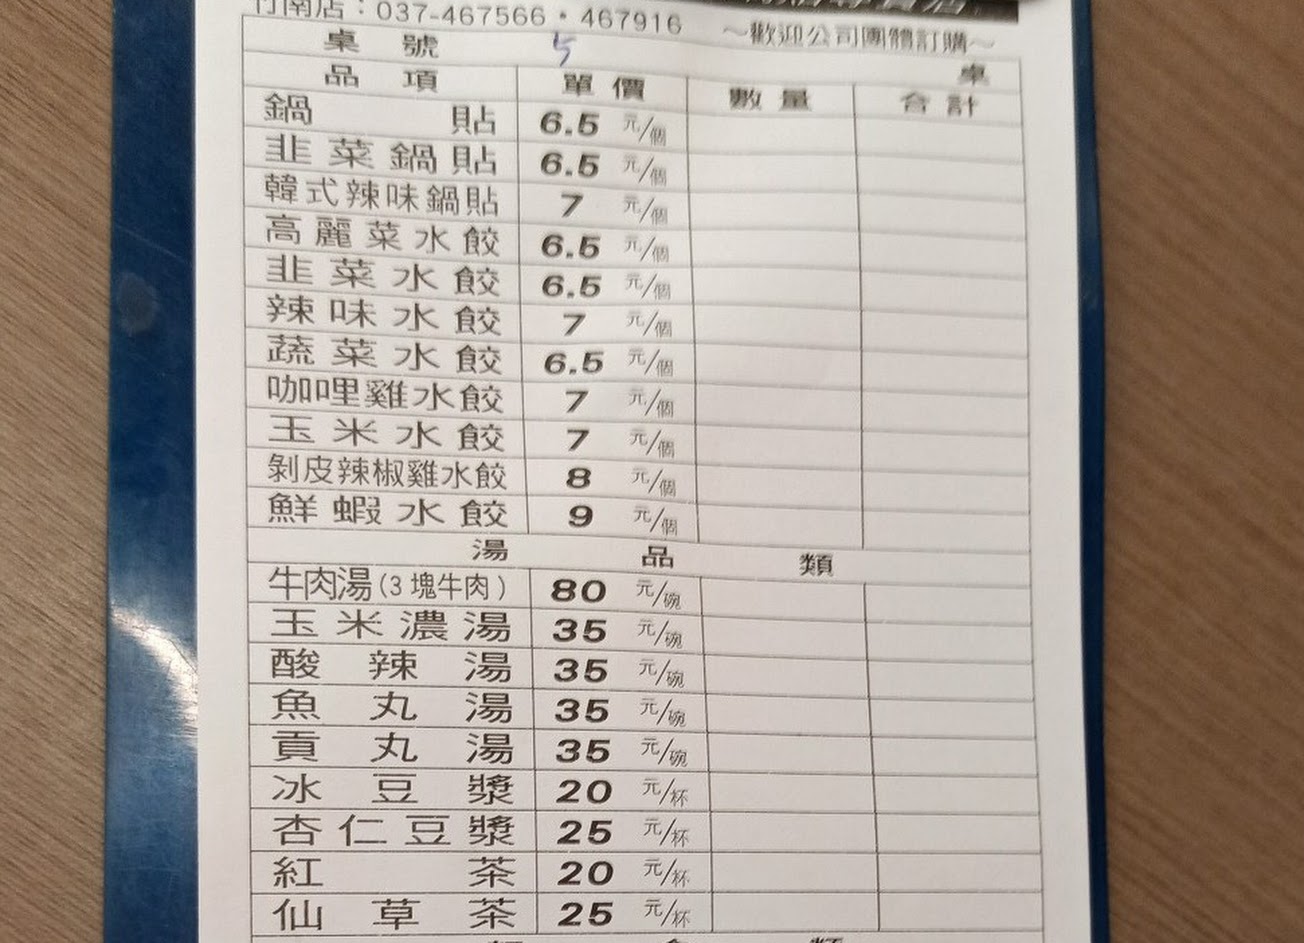 竹南店：037-467566・467916 ～歡迎公司團體訂購～
桌號 5 桌
品項 單價 數量 合計
鍋貼 6.5 元/個
韭菜鍋貼 6.5 元/個
韓式辣味鍋貼 7 元/個
高麗菜水餃 6.5 元/個
韭菜水餃 6.5 元/個
辣味水餃 7 元/個
蔬菜水餃 6.5 元/個
咖哩雞水餃 7 元/個
玉米水餃 7 元/個
剝皮辣椒雞水餃 8 元/個
鮮蝦水餃 9 元/個
湯品類
牛肉湯(3塊牛肉) 80 元/碗
玉米濃湯 35 元/碗
酸辣湯 35 元/碗
魚丸湯 35 元/碗
貢丸湯 35 元/碗
冰豆漿 20 元/杯
杏仁豆漿 25 元/杯
紅茶 20 元/杯
仙草茶 25 元/杯